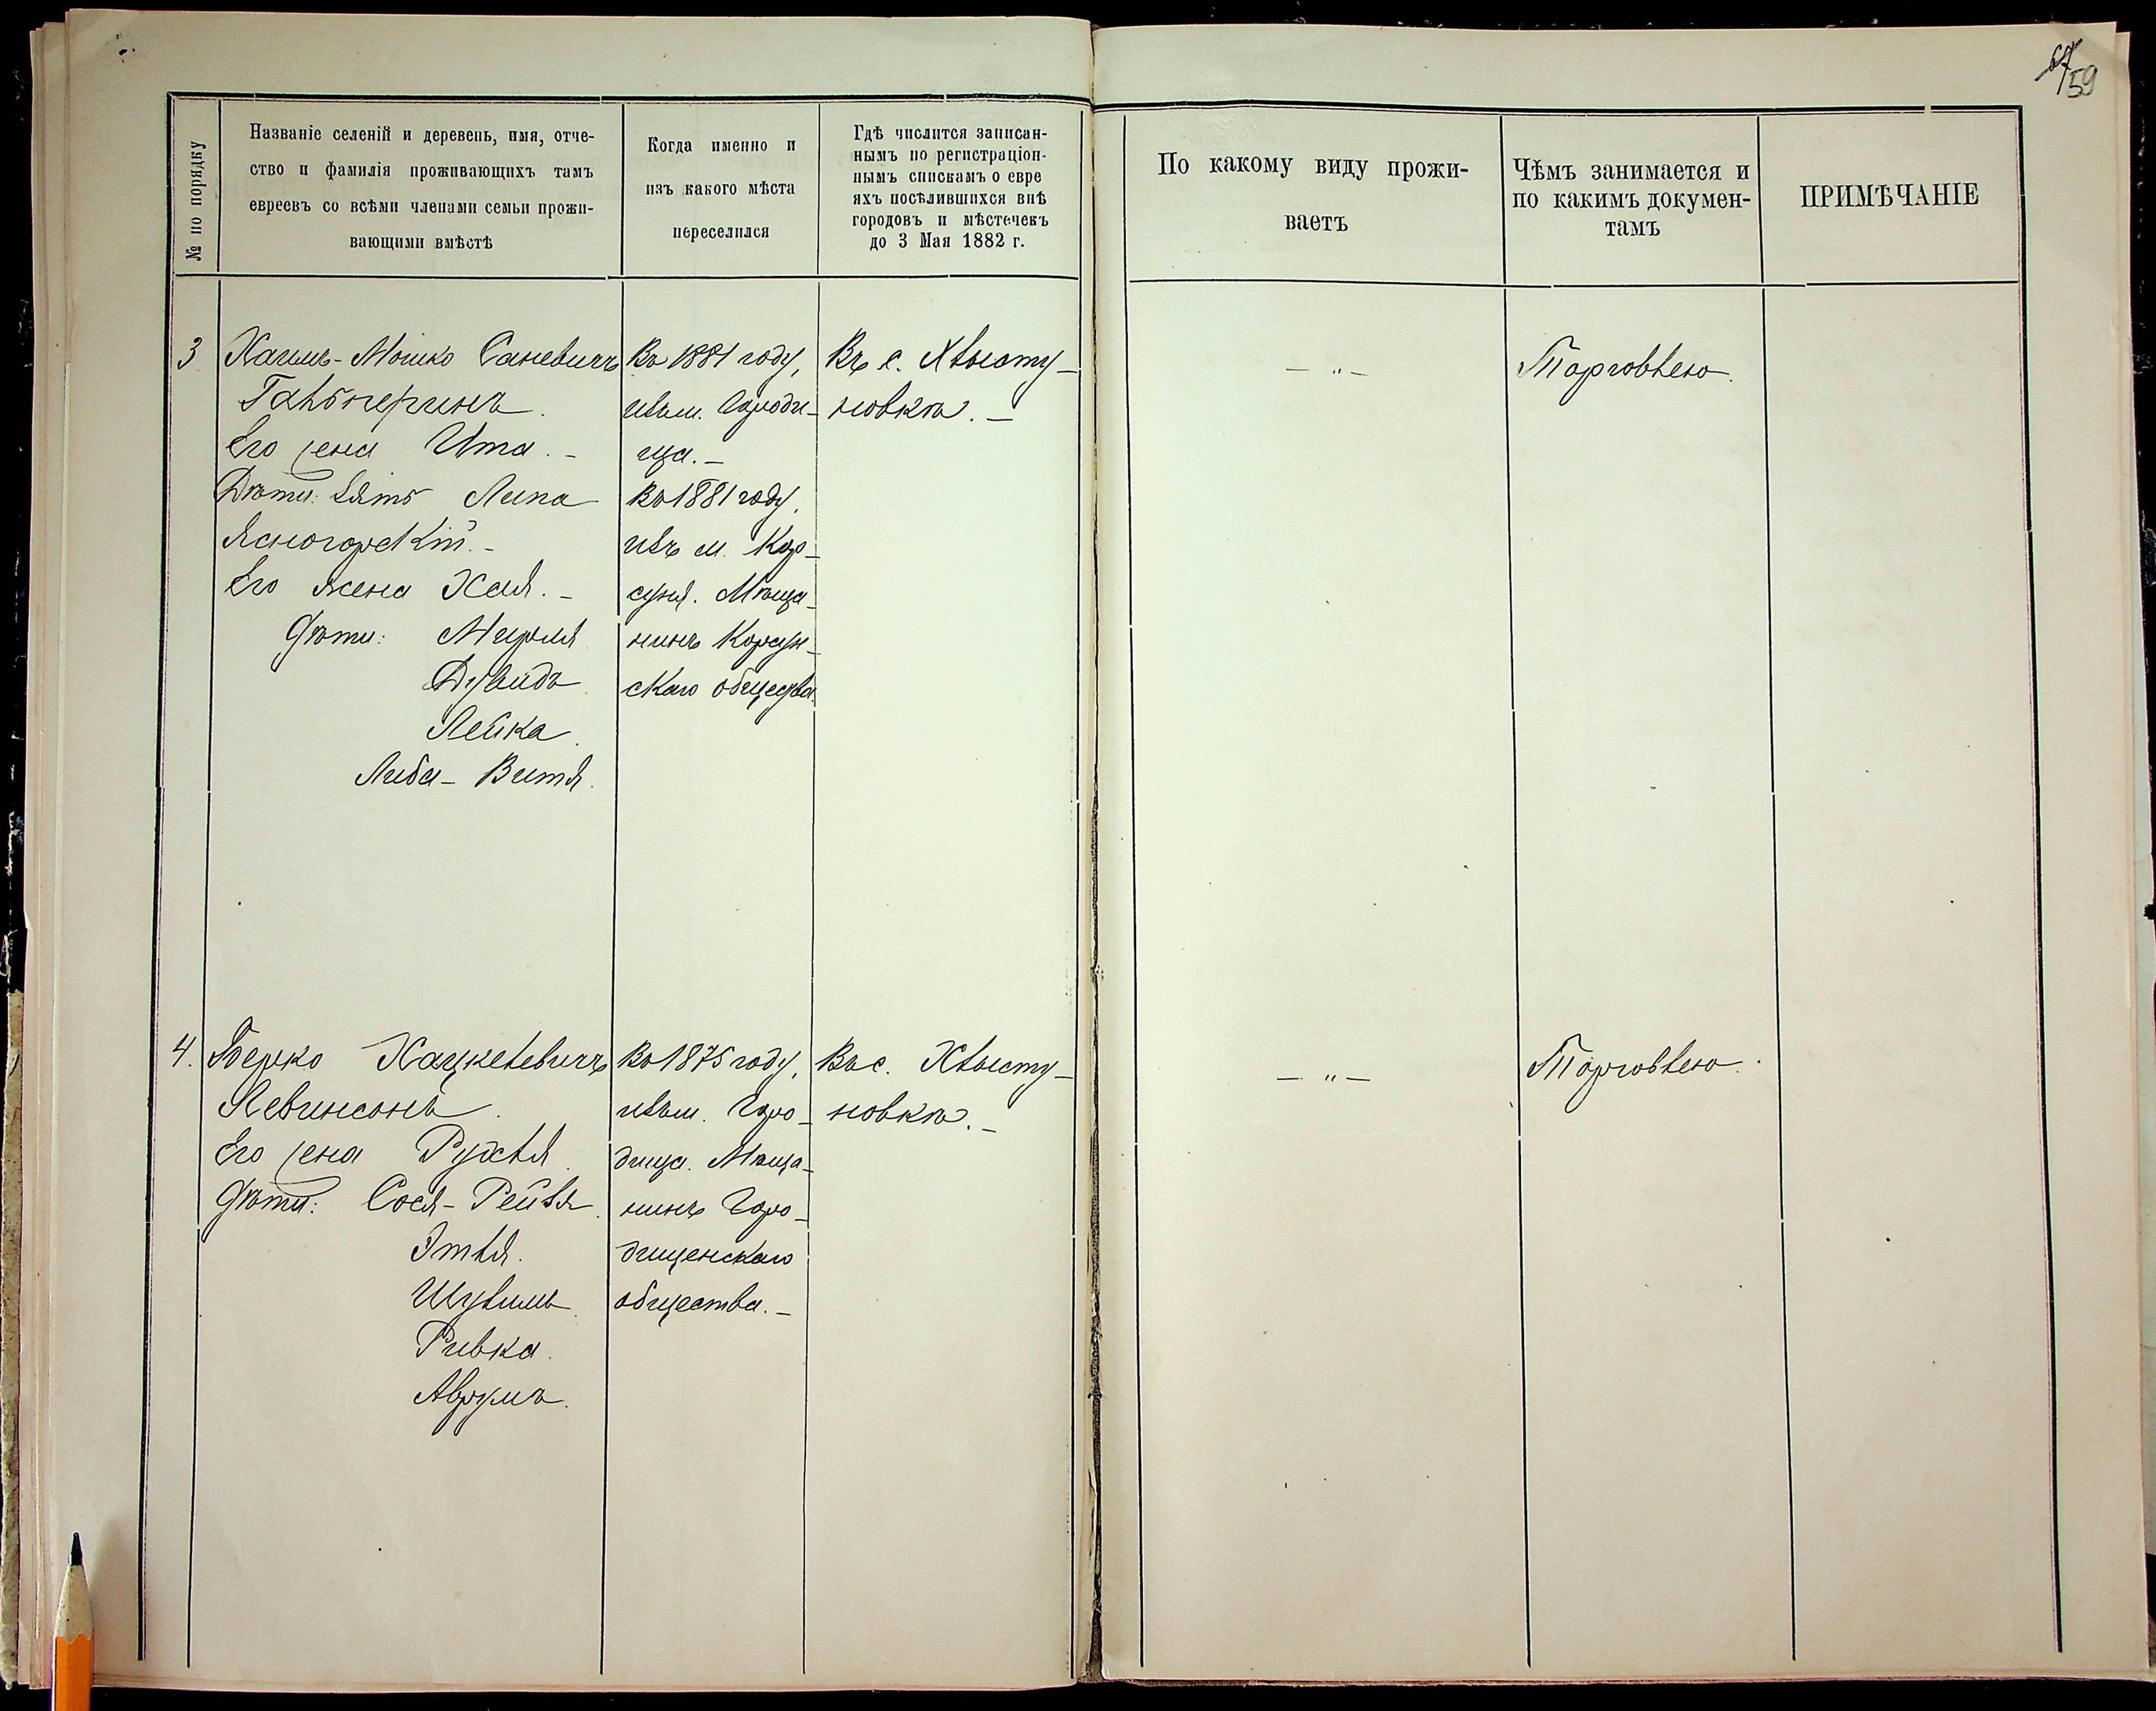 67
59
№ по порядку
Названіе селеній и деревень, имя, отче-
ство и фамилія проживающихъ тамъ
евреевъ со всѣми членами семьи прожи-
вающими вмѣстѣ
Когда именно и
изъ какого мѣста
переселился
Гдѣ числится записан-
нымъ по регистраціон-
нымъ спискамъ о евре
яхъ посѣлившихся внѣ
городовъ и мѣстечекъ
до 3 Мая 1882 г.
По какому виду прожи-
ваетъ
Чѣмъ занимается и
по какимъ докумен-
тамъ
ПРИМѢЧАНІЕ
3
Хаимъ-Мошко
Гальперинъ.
Его жена Ита. -
Дѣти: зять Липа
Ясногорскій. -
Его жена Хая. -
Дѣти: Мирля
Дувидъ.
Лейка.
Либа-Витя.
Въ 1881 году,
изъ м. Городи-
ща. -
Въ 1881 году,
изъ м. Кор-
суня. Мѣща-
нинъ Корсун-
скаго общества.
Въ с. Хлысту-
новкѣ. -
- " -
Торговлею.
4.
Берко Хацкелевичъ
Левинсонъ.
Его жена Рухля.
Дѣти: Сося-Рейзя.
Этля.
Шулимъ.
Ривка.
Аврумъ.
Въ 1875 году,
изъ м. Горо-
дища. Мѣща-
нинъ Горо-
дищенскаго
общества. -
Въ с. Хлысту-
новкѣ. -
- " -
Торговлею.